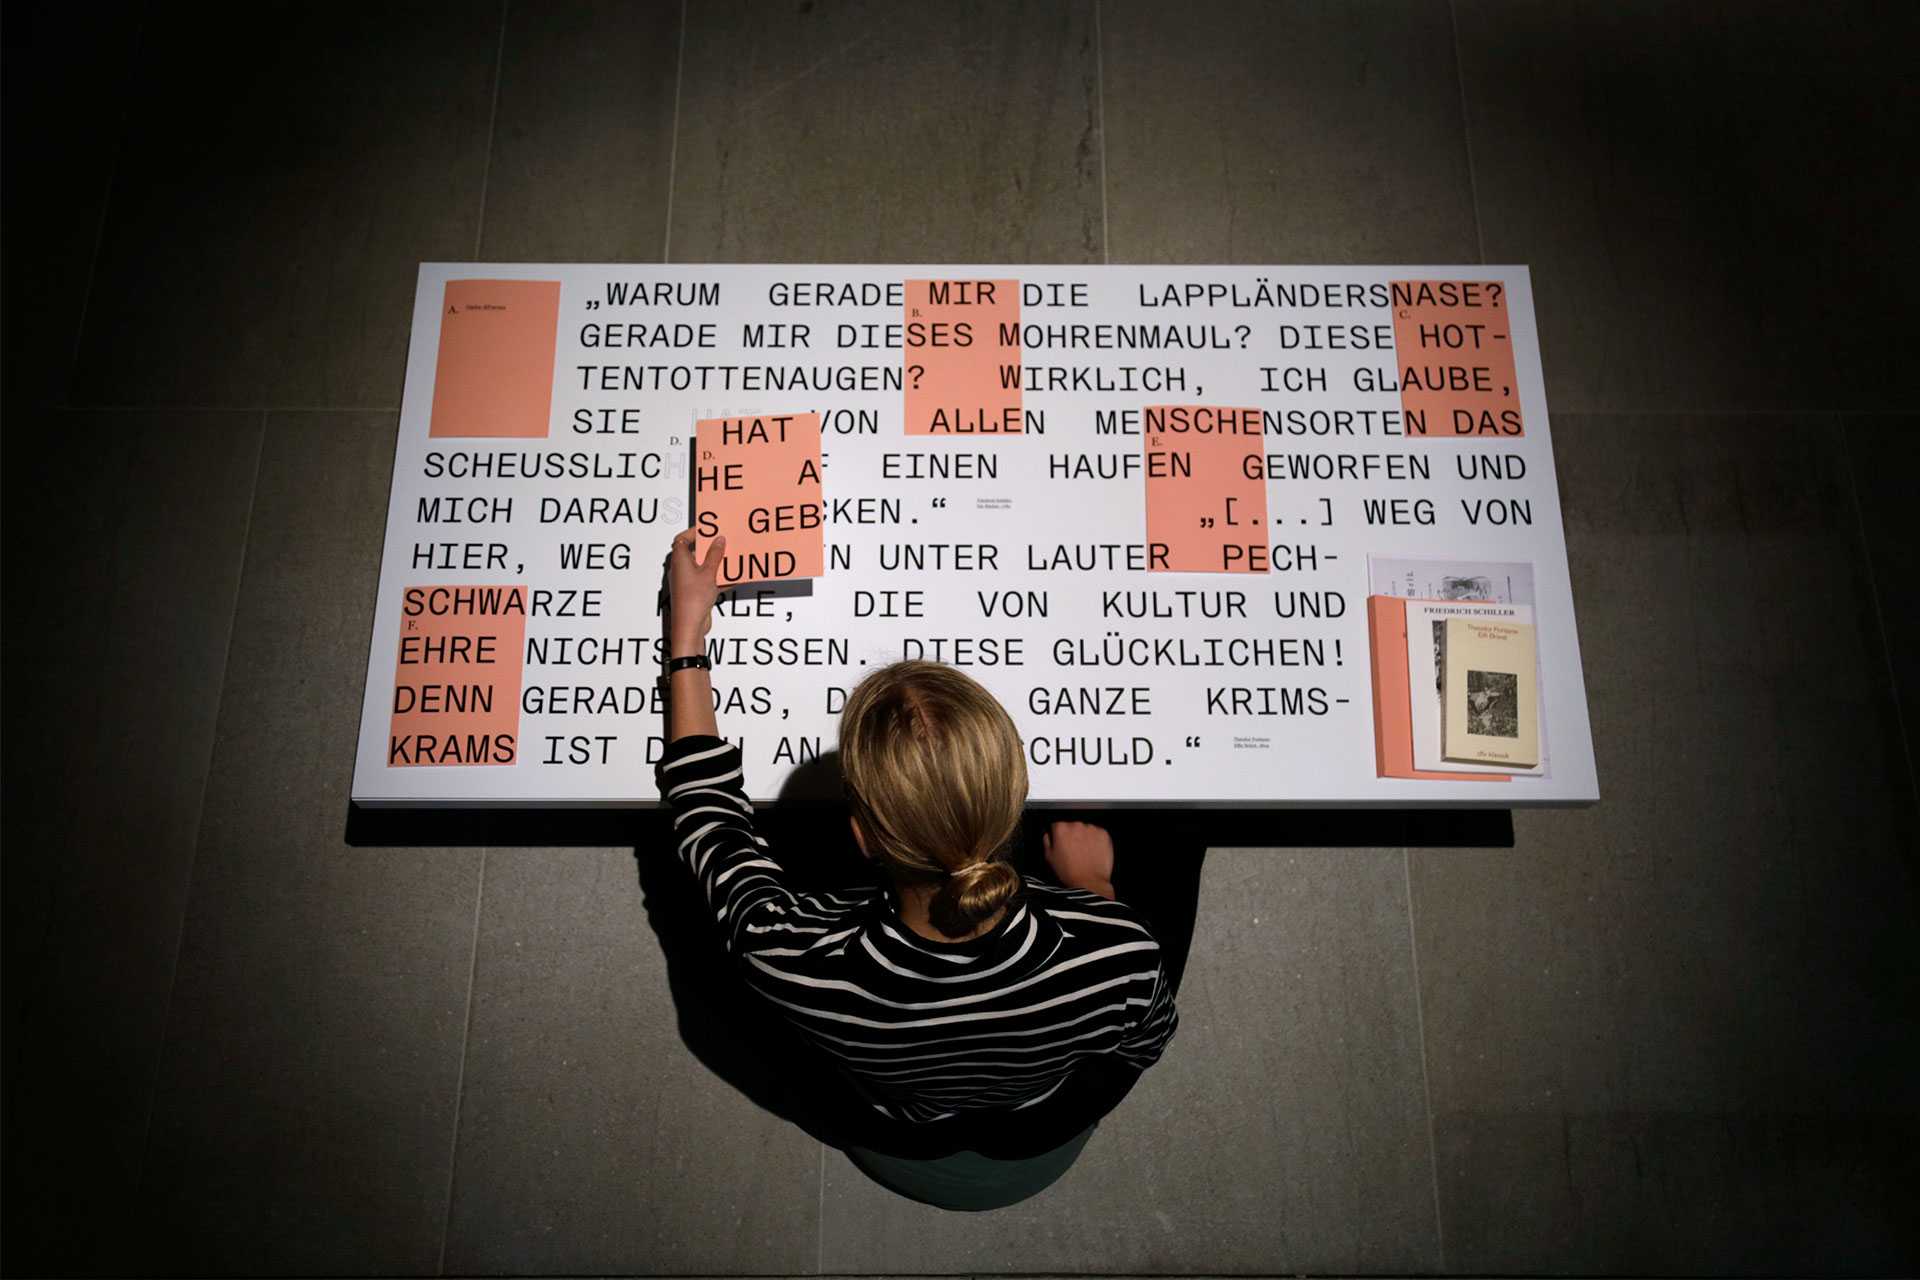 A.
„WARUM GERADE MIR DIE LAPPLÄNDERSNASE?
B.
C.
GERADE MIR DIESES MOHRENMAUL? DIESE HOT-
TENTOTTENAUGEN? WIRKLICH, ICH GLAUBE,
SIE HAT VON ALLEN MENSCHENSORTEN DAS
D.
D.
E.
SCHEUSSLICHE AUF EINEN HAUFEN GEWORFEN UND
MICH DARAUS GEBACKEN.“ „[...] WEG VON
HIER, WEG UND UNTER LAUTER PECH-
SCHWARZE KERLE, DIE VON KULTUR UND
F.
EHRE NICHTS WISSEN. DIESE GLÜCKLICHEN!
DENN GERADE DAS, GANZE KRIMS-
KRAMS IST AN SCHULD.“
FRIEDRICH SCHILLER
Theodor Fontane
Effi Briest